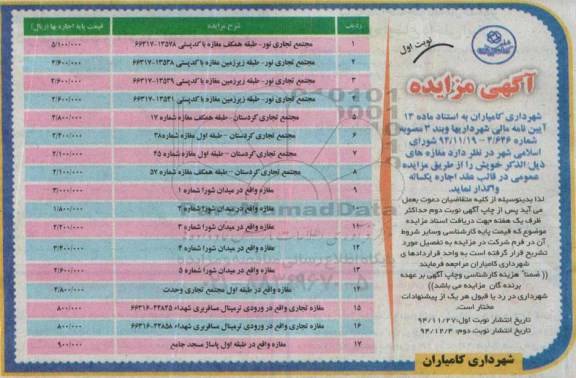 نوبت اول
آگهی مزایده
شهرداری کامیاران به استناد ماده ۱۳
آیین نامه مالی شهرداریها وبند ۳ مصوبه
شماره ۳/۶۲۶ – ۹۴/۱۱/۱۹ شورای
اسلامی شهر در نظر دارد مغازه های
ذیل الذکر خویش را از طریق مزایده
عمومی در قالب عقد اجاره یکساله
واگذار نماید.
لذا بدینوسیله از کلیه متقاضیان دعوت بعمل
می آید پس از چاپ آگهی نوبت دوم حداکثر
ظرف یک هفته جهت دریافت اسناد مزایده
موضوع که قیمت پایه کارشناسی وسایر شروط
آن در فرم شرکت در مزایده به تفصیل مورد
تشریح قرار گرفته است به واحد قراردادها ی
شهرداری کامیاران مراجعه فرمایند
(( ضمنا" هزینه کارشناسی وچاپ آگهی بر عهده
برنده گان مزایده می باشد))
شهرداری در رد یا قبول هر یک از پیشنهادات
مختار است.
تاریخ انتشار نوبت اول: ۹۴/۱۱/۲۷
تاریخ انتشار نوبت دوم: ۹۴/۱۲/۴
شهرداری کامیاران
ردیف شرح مزایده قیمت پایه اجاره بها (ریال)
۱ مجتمع تجاری نور- طبقه همکف مغازه با کدپستی ۱۳۵۷۸-۶۶۳۱۷ ۵/۱۰۰/۰۰۰
۲ مجتمع تجاری نور- طبقه زیرزمین مغازه با کدپستی ۱۳۵۳۸-۶۶۳۱۷ ۲/۶۰۰/۰۰۰
۳ مجتمع تجاری نور- طبقه زیرزمین مغازه با کدپستی ۱۳۵۳۹-۶۶۳۱۷ ۲/۶۰۰/۰۰۰
۴ مجتمع تجاری نور- طبقه زیرزمین مغازه با کدپستی ۱۳۵۴۱-۶۶۳۱۷ ۲/۶۰۰/۰۰۰
۵ مجتمع تجاری کردستان- طبقه همکف مغازه شماره ۱۷ ۲/۸۰۰/۰۰۰
۶ مجتمع تجاری کردستان – طبقه اول مغازه شماره ۳۸ ۲/۴۰۰/۰۰۰
۷ مجتمع تجاری کردستان – طبقه اول مغازه شماره ۴۵ ۲/۱۰۰/۰۰۰
۸ مجتمع تجاری کردستان – طبقه همکف مغازه شماره ۵۷ ۲/۱۰۰/۰۰۰
۹ مغازه واقع در میدان شورا شماره ۱ ۳/۰۰۰/۰۰۰
۱۰ مغازه واقع در میدان شورا شماره ۲ ۱/۸۰۰/۰۰۰
۱۱ مغازه واقع در میدان شورا شماره ۳ ۲/۲۰۰/۰۰۰
۱۲ مغازه واقع در میدان شورا شماره ۴ ۳/۲۰۰/۰۰۰
۱۳ مغازه واقع در میدان شورا شماره ۵ ۲/۶۰۰/۰۰۰
۱۴ مغازه واقع در طبقه اول مجتمع تجاری وحدت ۲/۸۰۰/۰۰۰
۱۵ مغازه تجاری واقع در ورودی ترمینال مسافربری شهداء ۴۴۸۴۵-۶۶۳۱۶ ۸۰۰/۰۰۰
۱۶ مغازه تجاری واقع در ورودی ترمینال مسافربری شهداء ۴۴۸۵۸-۶۶۳۱۶ ۸۰۰/۰۰۰
۱۷ مغازه واقع در طبقه اول پاساژ مسجد جامع ۹۰۰/۰۰۰